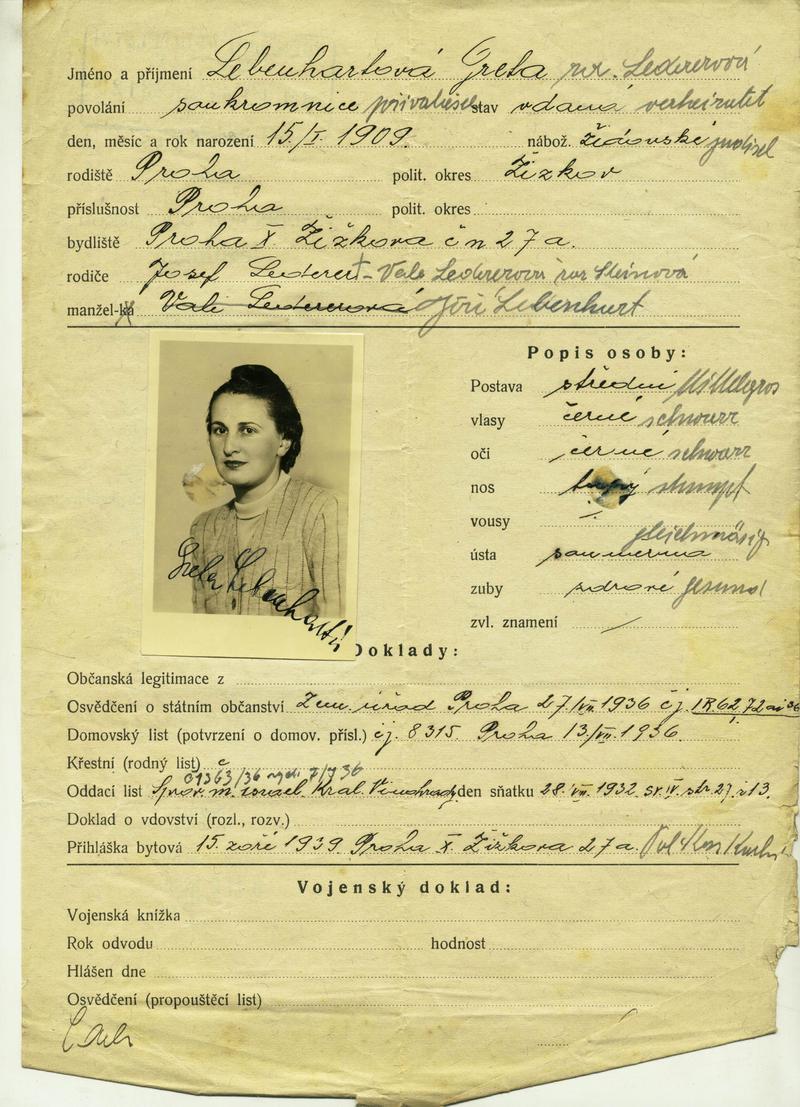 Jméno a příjmení Lebenhartová Greta roz. Ledererová
povolání soukromnice stav vdaná verheiratet
den, měsíc a rok narození 15./I. 1909. nábož. židovské
rodiště Praha polit. okres Žižkov
příslušnost Praha polit. okres
bydliště Praha X Žižkova č n 27a.
rodiče Josef Lederer - Vala Ledererová roz Steinová
manžel-ka Vali Ledererová Jiří Lebenhart
Popis osoby:
Postava střední
vlasy černé schwarz
oči černé schwarz
nos tupý stumpf
vousy
gleichmässig
ústa souměrná
zuby zdravé gesund
zvl. znamení
Greta Lebenhartová
Doklady:
Občanská legitimace z
Osvědčení o státním občanství Zem. úřad Praha 27/VII. 1936 čj.
Domovský list (potvrzení o domov. přísl.) čj. 8315 Praha 13/VII. 1936.
Křestní (rodný list) č
01363/36
Oddací list izrael. Král. Vinohrady den sňatku 28. VII. 1932 sv. IV. str. 27. č 13.
Doklad o vdovství (rozl., rozv.)
Přihláška bytová 15. září 1939 Praha X Žižkova 27a.
Vojenský doklad:
Vojenská knížka
Rok odvodu hodnost
Hlášen dne
Osvědčení (propouštěcí list)